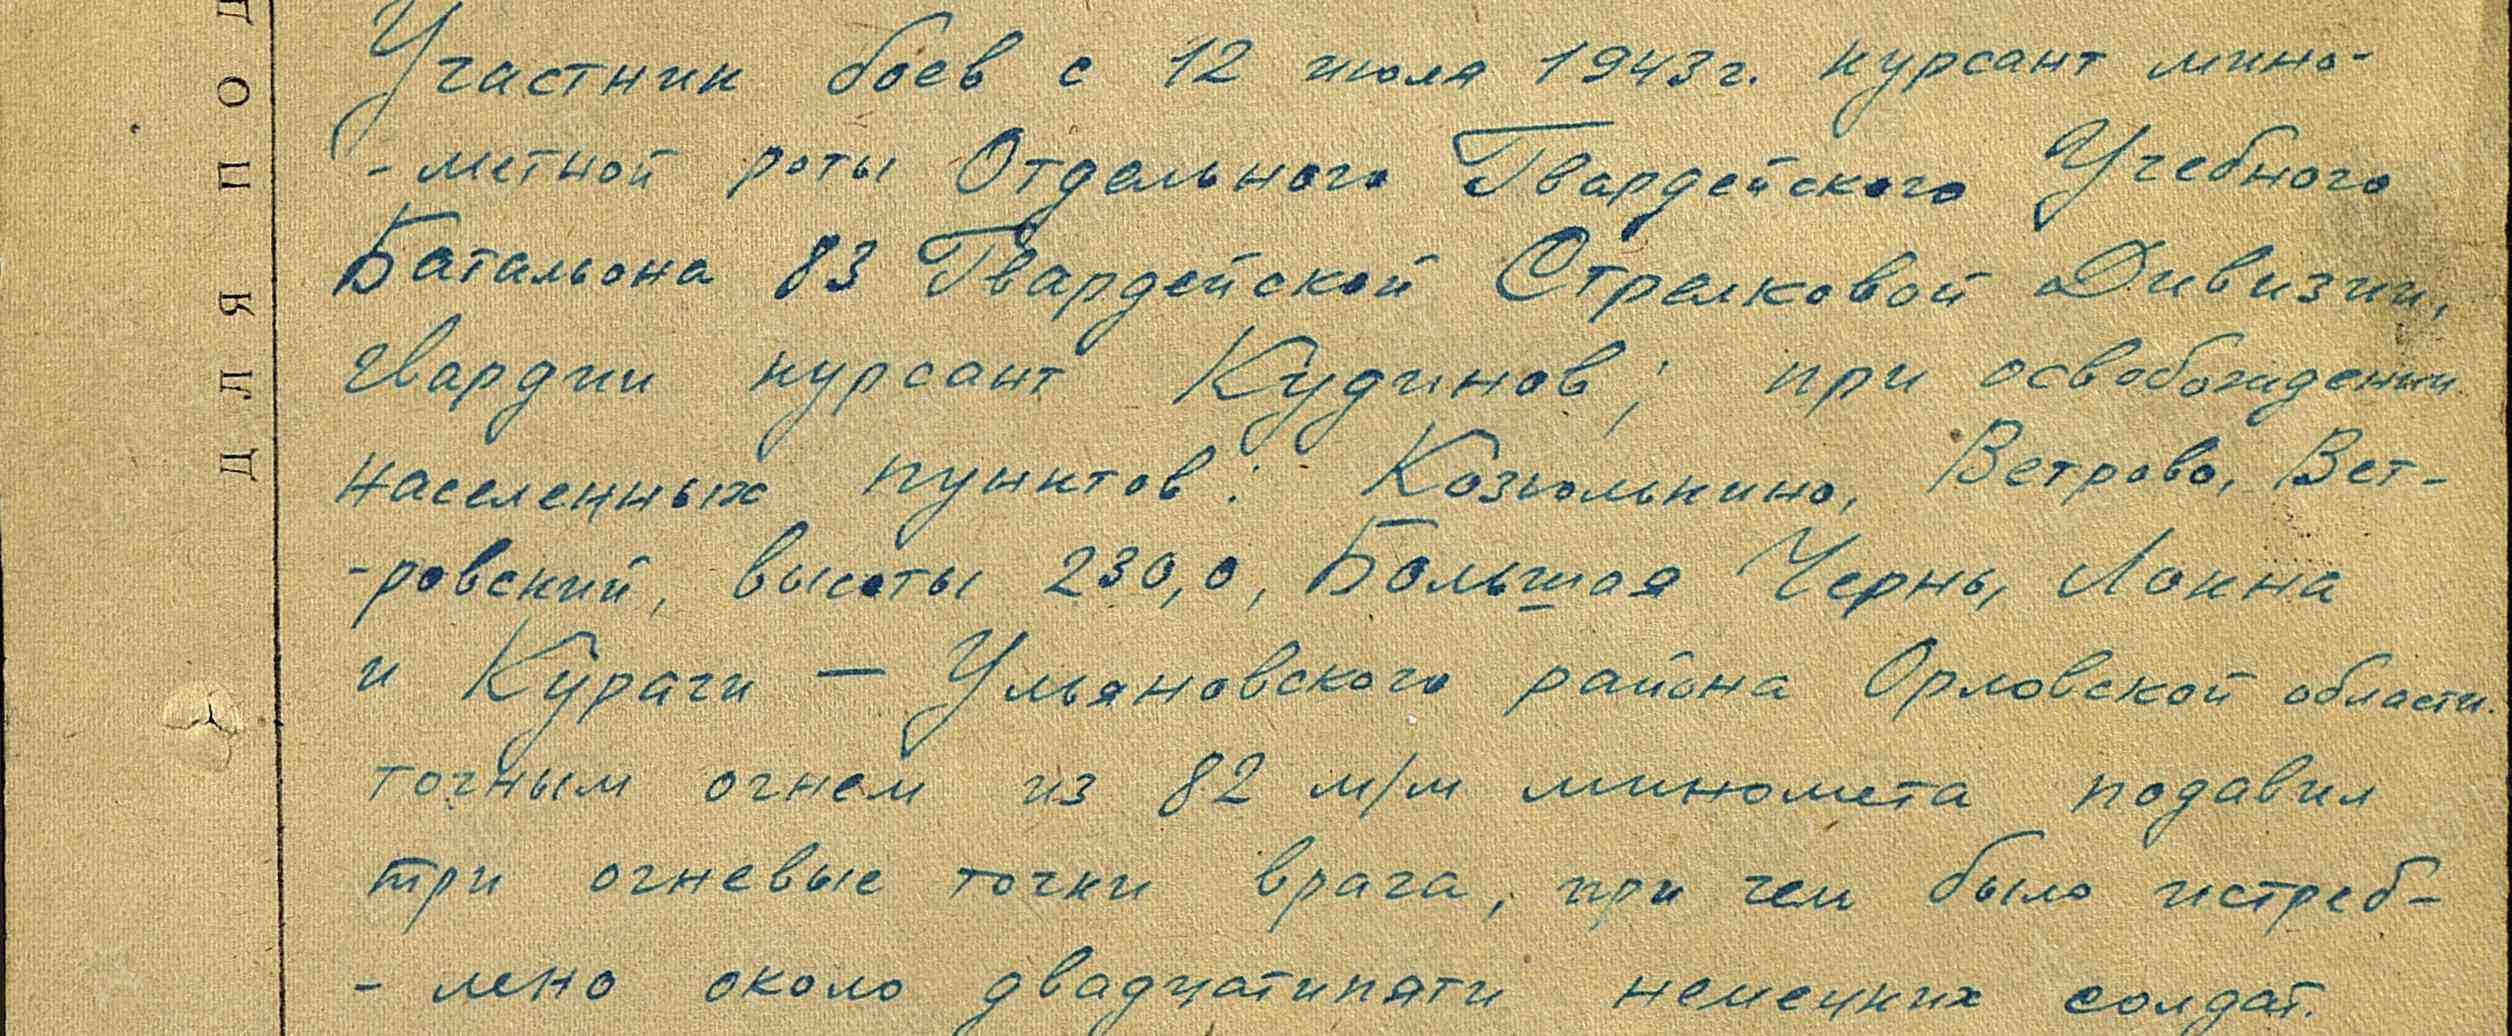 Участник боев с 12 июля 1943г. курсант мино-
-метной роты Отдельного Гвардейского Учебного
Батальона 83 Гвардейской Стрелковой Дивизии,
гвардии курсант Кудинов; при освобождении
населенных пунктов: Козюлькино, Ветрово, Вет-
-ровский, высоты 230,0, Большая Чернь, Локна
и Кураги — Ульяновского района Орловской области.
точным огнем из 82 м/м миномета подавил
три огневые точки врага, при чем было истреб-
- лено около двадцатипяти немецких солдат.
ДЛЯ ПОД